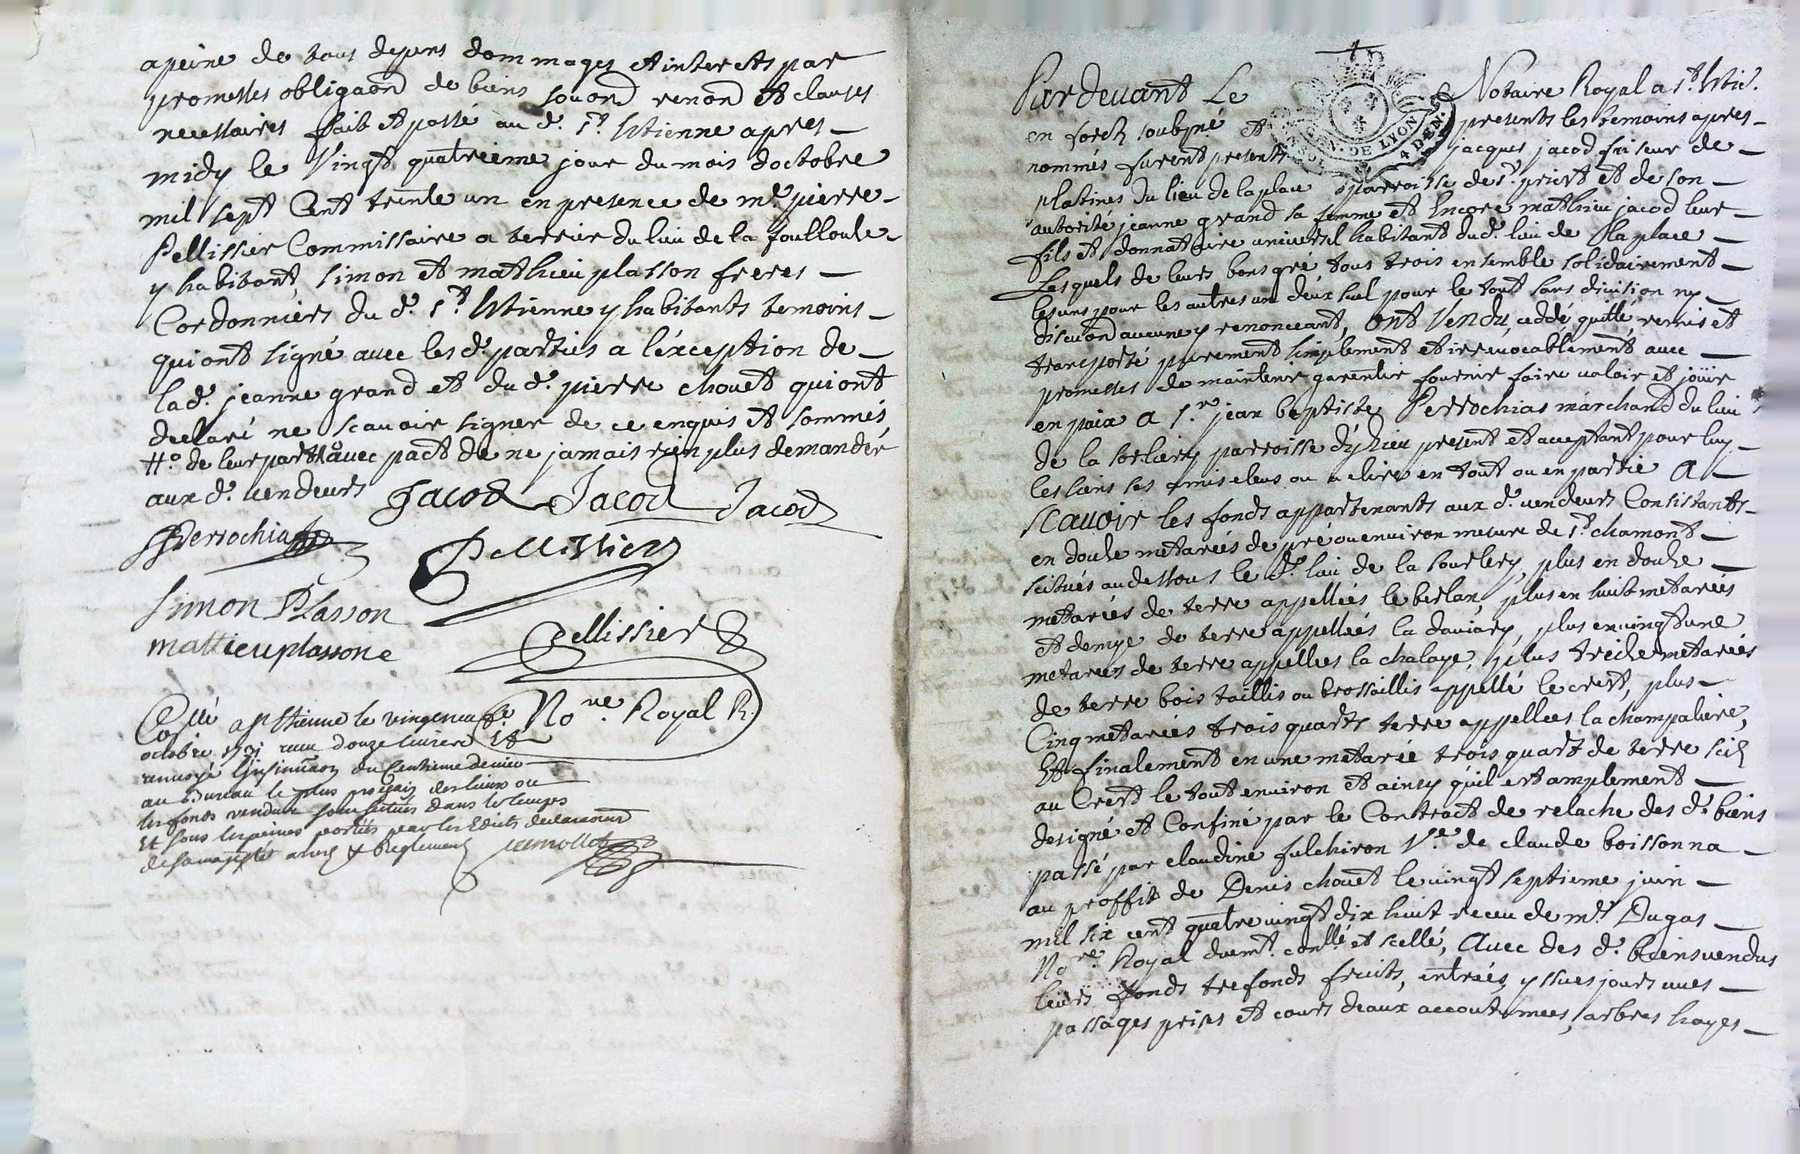 a peine de tous depens dommages et interets par
promesses obligaon de biens soumon renon et clauses
necessaires fait et passé au d. St. Estienne apres
midy le vingt quatrieme jour du mois doctobre
mil sept Cent trente un en presence de me. pierre
Pellissier Commissaire a terrier du lieu de la foullouse
y habitant, simon et mathieu plasson freres
Cordonniers du d. St. Estienne y habitants temoins
qui ont signé avec les d. parties a l'éxception de
la d. jeanne grand et du d. pierre chouet qui ont
declaré ne scavoir signer de ce enquis et sommés
de leur part avec pact de ne jamais rien plus demander
aux d. vendeurs Jacod Jacod Jacod
Perrochia
Pellissier
Simon Plasson
mattieu plassone
Pellissier
Nore. Royal R.
Collé a St Estienne le vingt
octobre 1731 receu douze livres
renvoyé l'insinuaon du Centieme denier
au Bureau le plus prochain des lieux ou
les fonds vendus sont situés dans le temps
Et sous les peines portés par les Edits declaraons
de sa majesté arrets & Reglements
Pardevant Le Notaire Royal a St. Etie.
en forest soubsné et presents les temoins apres
nommés furent presents jacques jacod faiseur de
platines du lieu de la place parroisse de St. priest et de son
autorité jeanne grand sa femme et Encore mathieu jacod leur
fils et donnataire universel habitant du d. lieu de la place
Lesquels de leurs bons gré tous trois ensemble solidairement
les uns pour les autres un deux seul pour le tout sans division ny
discuon aucune y renonceant, ont vendu, ceddé quitté remis et
transporté purement simplement et irrevocablement avec
promesses de maintenir garentir fournir faire valoir et jouir
en paix a Sr. jean baptiste Perrochias marchand du lieu
de la sorliery parroisse d'yzieu present et acceptant pour luy
les siens ses amis eleus ou a elire en tout ou en partie A
Scavoir les fonds appartenants aux d. vendeurs Consistants
en douze metareés de pré ou environ mesure de St. chamont
scitués au dessous le d. lieu de la sourlery, plus en douze
metareés de terre appelleés le berlan, plus en huit metareés
et demye de terre appelleés la daviary, plus en vingt une
metareés de terre appellees la chalaye, plus treize metareés
de terre bois taillis ou brossaillis appellé le crest, plus
Cinq metareés trois quarts terre appellees la champaliere,
Et finalement en une metareé trois quart de terre size
au Crest le tout environ et ainsy qu'il est amplement
designé et Confiné par le Contract de relache des d. biens
passé par claudine fulchiron Ve. de claude boissonna
au proffit de Denis chouet le vingt septieme juin
mil six cent quatre vingt dix huit receu de me. Dugas
Nore. Royal duemt. conllé et scellé, Avec des d. Biens vendus
leurs fonds trefonds fruits, entreés, yssues jours vues
passages prises et cours deaux accoutumees, arbres hayes
GEN. DE LYON
4 DEN